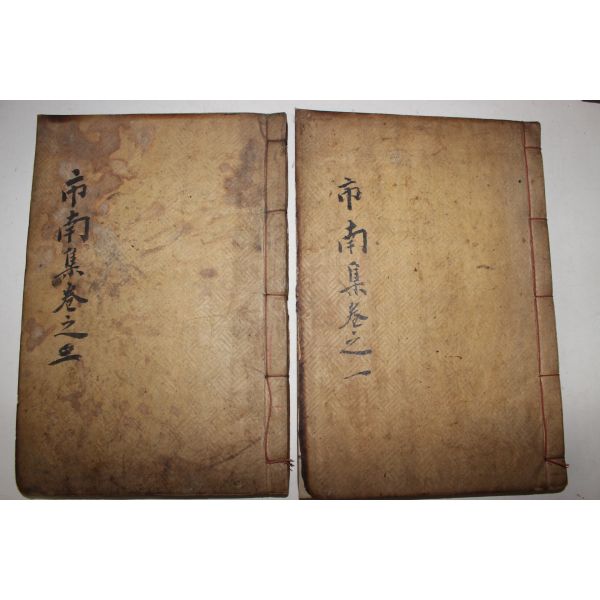 市南集卷之一
市南集卷之五